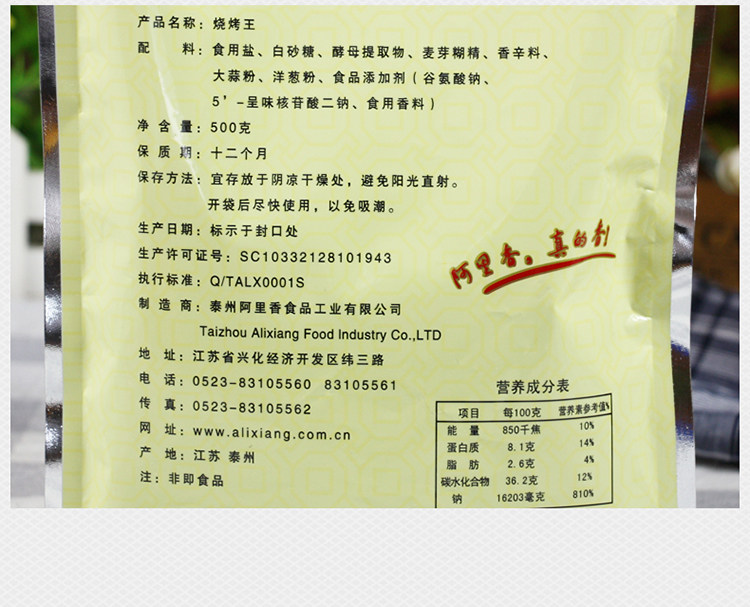 产品名称：烧烤王
配 料：食用盐、白砂糖、酵母提取物、麦芽糊精、香辛料、
大蒜粉、洋葱粉、食品添加剂（谷氨酸钠、
5’-呈味核苷酸二钠、食用香料）
净 含 量：500克
保 质 期：十二个月
保存方法：宜存放于阴凉干燥处，避免阳光直射。
开袋后尽快使用，以免吸潮。
生产日期：标示于封口处
生产许可证号：SC10332128101943
执行标准：Q/TALX0001S
制 造 商：泰州阿里香食品工业有限公司
Taizhou Alixiang Food Industry Co.,LTD
地 址：江苏省兴化经济开发区纬三路
电 话：0523-83105560 83105561
传 真：0523-83105562
网 址：www.alixiang.com.cn
产 地：江苏 泰州
注：非即食品
阿里香。真的剂
营养成分表
项目 每100克 营养素参考值%
能 量 850千焦 10%
蛋白质 8.1克 14%
脂 肪 2.6克 4%
碳水化合物 36.2克 12%
钠 16203毫克 810%